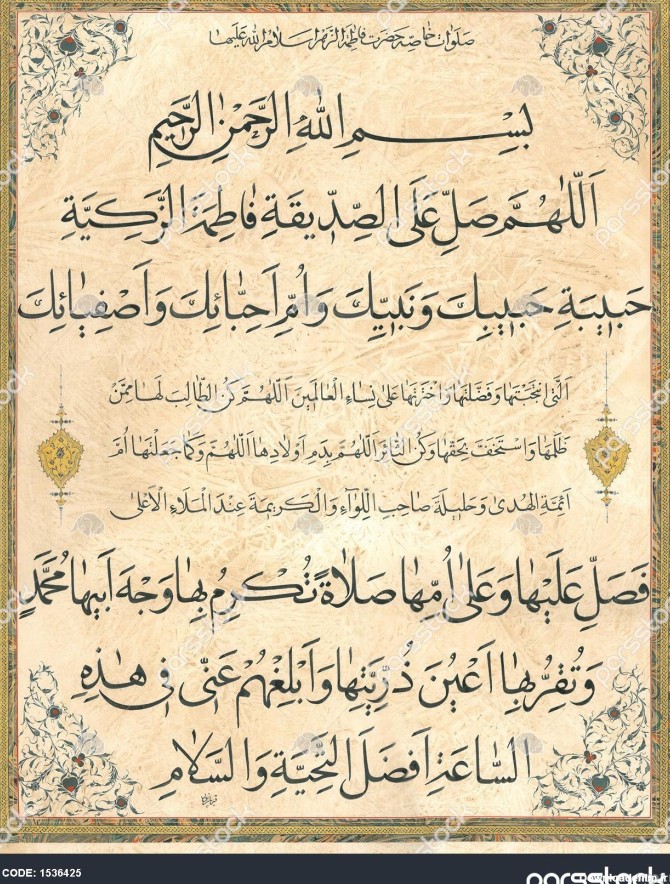 صلوات خاصه حضرت فاطمة الزهراء سلام الله علیها
بِسْمِ اللّٰهِ الرَّحْمٰنِ الرَّحِيمِ
اَللّٰهُمَّ صَلِّ عَلَى الصِّدّيقَةِ فاطِمَةَ الزَّكِيَّةِ
حَبيبَةِ حَبيبِكَ وَنَبِيِّكَ وَاُمِّ اَحِبّائِكَ وَاَصْفِيائِكَ
اَلَّتِى انْتَجَبْتَها وَفَضَّلْتَها وَاخْتَرْتَها عَلى نِساءِ الْعالَمينَ اَللّٰهُمَّ كُنِ الطّالِبَ لَها مِمَّنْ
ظَلَمَها وَاسْتَخَفَّ بِحَقِّها وَكُنِ الثّائِرَ اَللّٰهُمَّ بِدَمِ اَوْلادِها اَللّٰهُمَّ وَكَما جَعَلْتَها اُمَّ
اَئِمَّةِ الْهُدىٰ وَحَليلَةَ صاحِبِ اللِّوآءِ وَالْكَريمَةَ عِنْدَ الْمَلَاءِ الْاَعْلىٰ
فَصَلِّ عَلَيْها وَعَلىٰ اُمِّها صَلاةً تُكْرِمُ بِها وَجْهَ اَبيها مُحَمَّدٍ
وَتُقِرُّ بِها اَعْيُنَ ذُرِّيَّتِها وَاَبْلِغْهُمْ عَنّى فى هٰذِهِ
السّاعَةِ اَفْضَلَ التَّحِيَّةِ وَالسَّلامِ
CODE: 1536425
parsstock